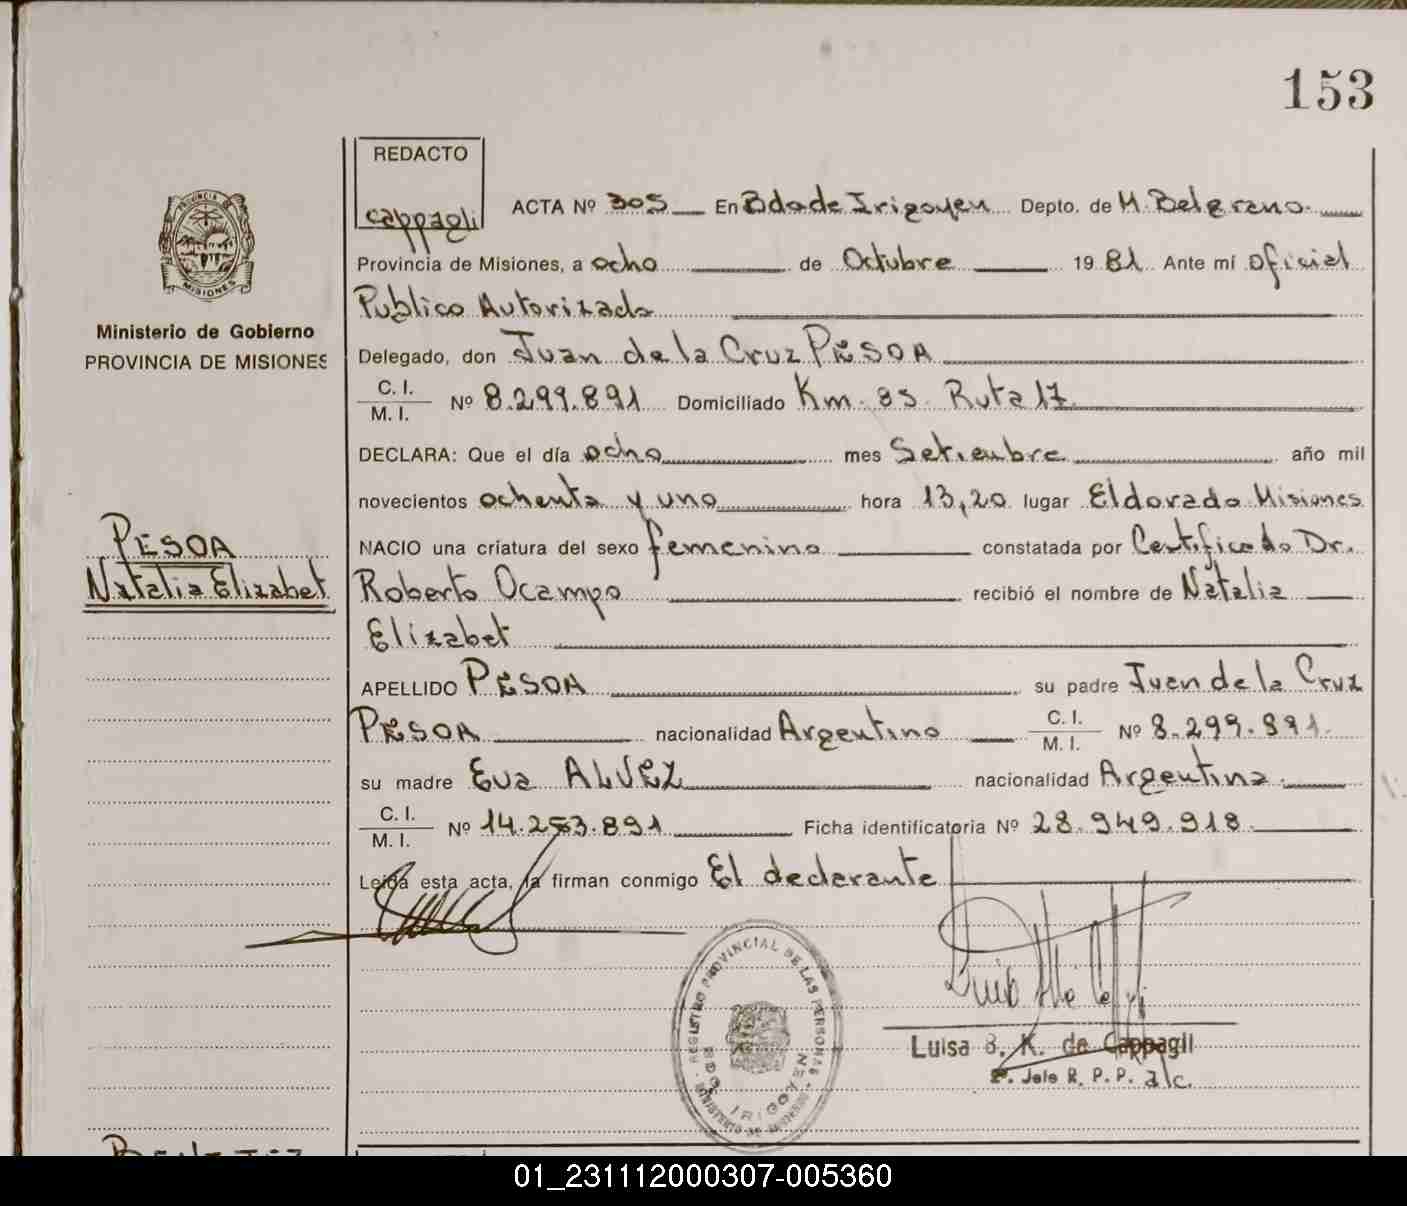 153
REDACTO
cappagli
ACTA Nº 305 En Bdo de Irigoyen Depto. de M. Belgrano.
Provincia de Misiones, a ocho de Octubre 1981 Ante mí oficial
Publico Autorizado
Delegado, don Juan de la Cruz PESOA
C. I.
M. I. Nº 8.299.891 Domiciliado Km. 85 Ruta 17
DECLARA: Que el día ocho mes Setiembre año mil
novecientos ochenta y uno hora 13,20 lugar Eldorado Misiones
NACIO una criatura del sexo femenino constatada por Certificado Dr.
Roberto Ocampo recibió el nombre de Natalia
Elizabet
APELLIDO PESOA su padre Juan de la Cruz
PESOA nacionalidad Argentino C. I.
M. I. Nº 8.299.891.
su madre Eva ALVEZ nacionalidad Argentina.
C. I.
M. I. Nº 14.253.891 Ficha identificatoria Nº 28.949.918.
Leída esta acta, la firman conmigo El declarante
Luisa B. K. de Cappagli
Jefe R. P. P. a/c.
REGISTRO PROVINCIAL DE LAS PERSONAS
BDO. IRIGOYEN
MINISTERIO DE GOBIERNO
PROVINCIA DE
MISIONES
Ministerio de Gobierno
PROVINCIA DE MISIONES
PESOA
Natalia Elizabet
01_231112000307-005360